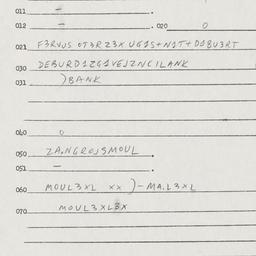 011 —
012 — . 020 0
021 F3RVUS OT3RZ3X UG1S+N1T+D1BU3RT
030 DEBURD1ZG1VEJZNCILANK
031 )BANK
040 0
050 ZA.NGROJSMOUL .
051 — .
060 MOUL3XL XX )-MA.L3XL
070 MOUL3XL3X